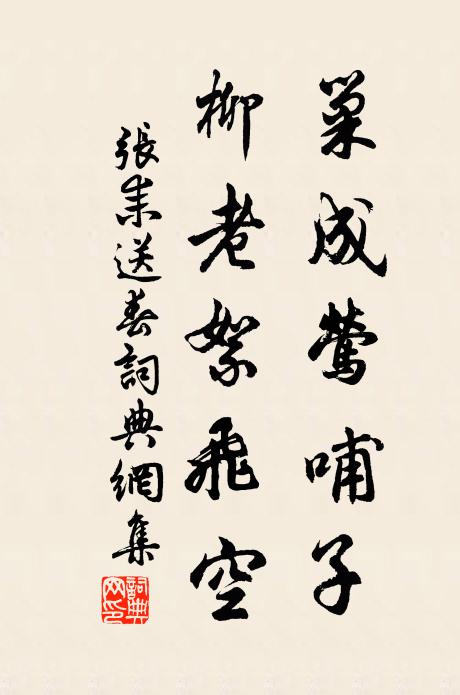 巢成莺哺子
柳老絮飛空
張耒送春詞典網集
詞典網印